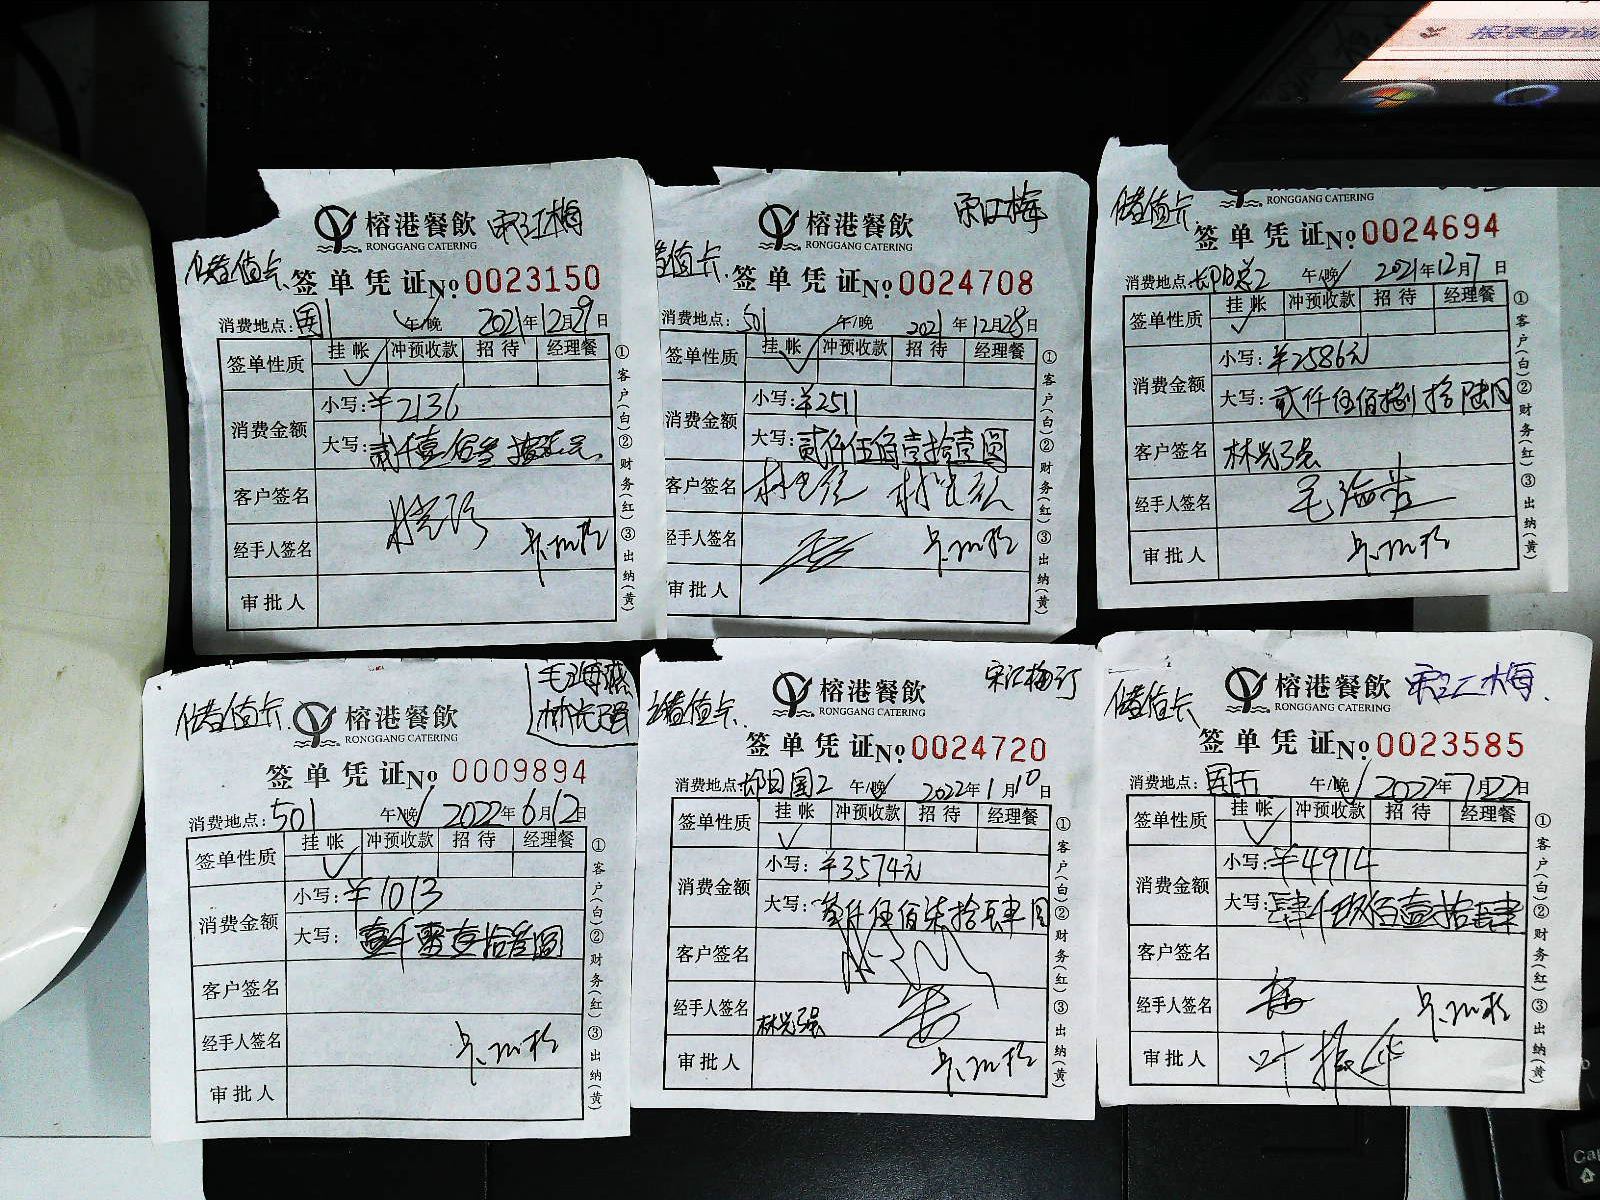 报表查询
榕港餐飲 宋江梅
RONGGANG CATERING
储值卡
签单凭证 No 0023150
消费地点: 国1 午/晚 2021年12月29日
签单性质 挂帐 冲预收款 招待 经理餐
消费金额 小写: ¥2136
大写: 贰仟壹佰叁拾陆元
客户签名
经手人签名
审批人
①客户(白)②财务(红)③出纳(黄)
榕港餐飲 宋江梅
RONGGANG CATERING
储值卡
签单凭证 No 0024708
消费地点: 501 午/晚 2021年12月28日
签单性质 挂帐 冲预收款 招待 经理餐
消费金额 小写: ¥2511
大写: 贰仟伍佰壹拾壹圆
客户签名
经手人签名
审批人
①客户(白)②财务(红)③出纳(黄)
RONGGANG CATERING
储值卡
签单凭证 No 0024694
消费地点: 午/晚 2021年12月7日
签单性质 挂帐 冲预收款 招待 经理餐
消费金额 小写: ¥2586元
大写: 贰仟伍佰捌拾陆圆
客户签名 林光强
经手人签名 毛海燕
审批人
①客户(白)②财务(红)③出纳(黄)
毛海燕
林光强
储值卡 榕港餐飲
RONGGANG CATERING
签单凭证 No 0009894
消费地点: 501 午/晚 2022年6月12日
签单性质 挂帐 冲预收款 招待 经理餐
消费金额 小写: ¥1013
大写: 壹仟零壹拾叁圆
客户签名
经手人签名
审批人
①客户(白)②财务(红)③出纳(黄)
榕港餐飲 宋江梅订
RONGGANG CATERING
储值卡
签单凭证 No 0024720
消费地点: 国2 午/晚 2022年1月10日
签单性质 挂帐 冲预收款 招待 经理餐
消费金额 小写: ¥3574元
大写: 叁仟伍佰柒拾肆圆
客户签名
经手人签名 林光强
审批人
①客户(白)②财务(红)③出纳(黄)
榕港餐飲 宋江梅
RONGGANG CATERING
储值卡
签单凭证 No 0023585
消费地点: 午/晚 2022年7月22日
签单性质 挂帐 冲预收款 招待 经理餐
消费金额 小写: ¥4914
大写: 肆仟玖佰壹拾肆
客户签名
经手人签名
审批人 叶振华
①客户(白)②财务(红)③出纳(黄)